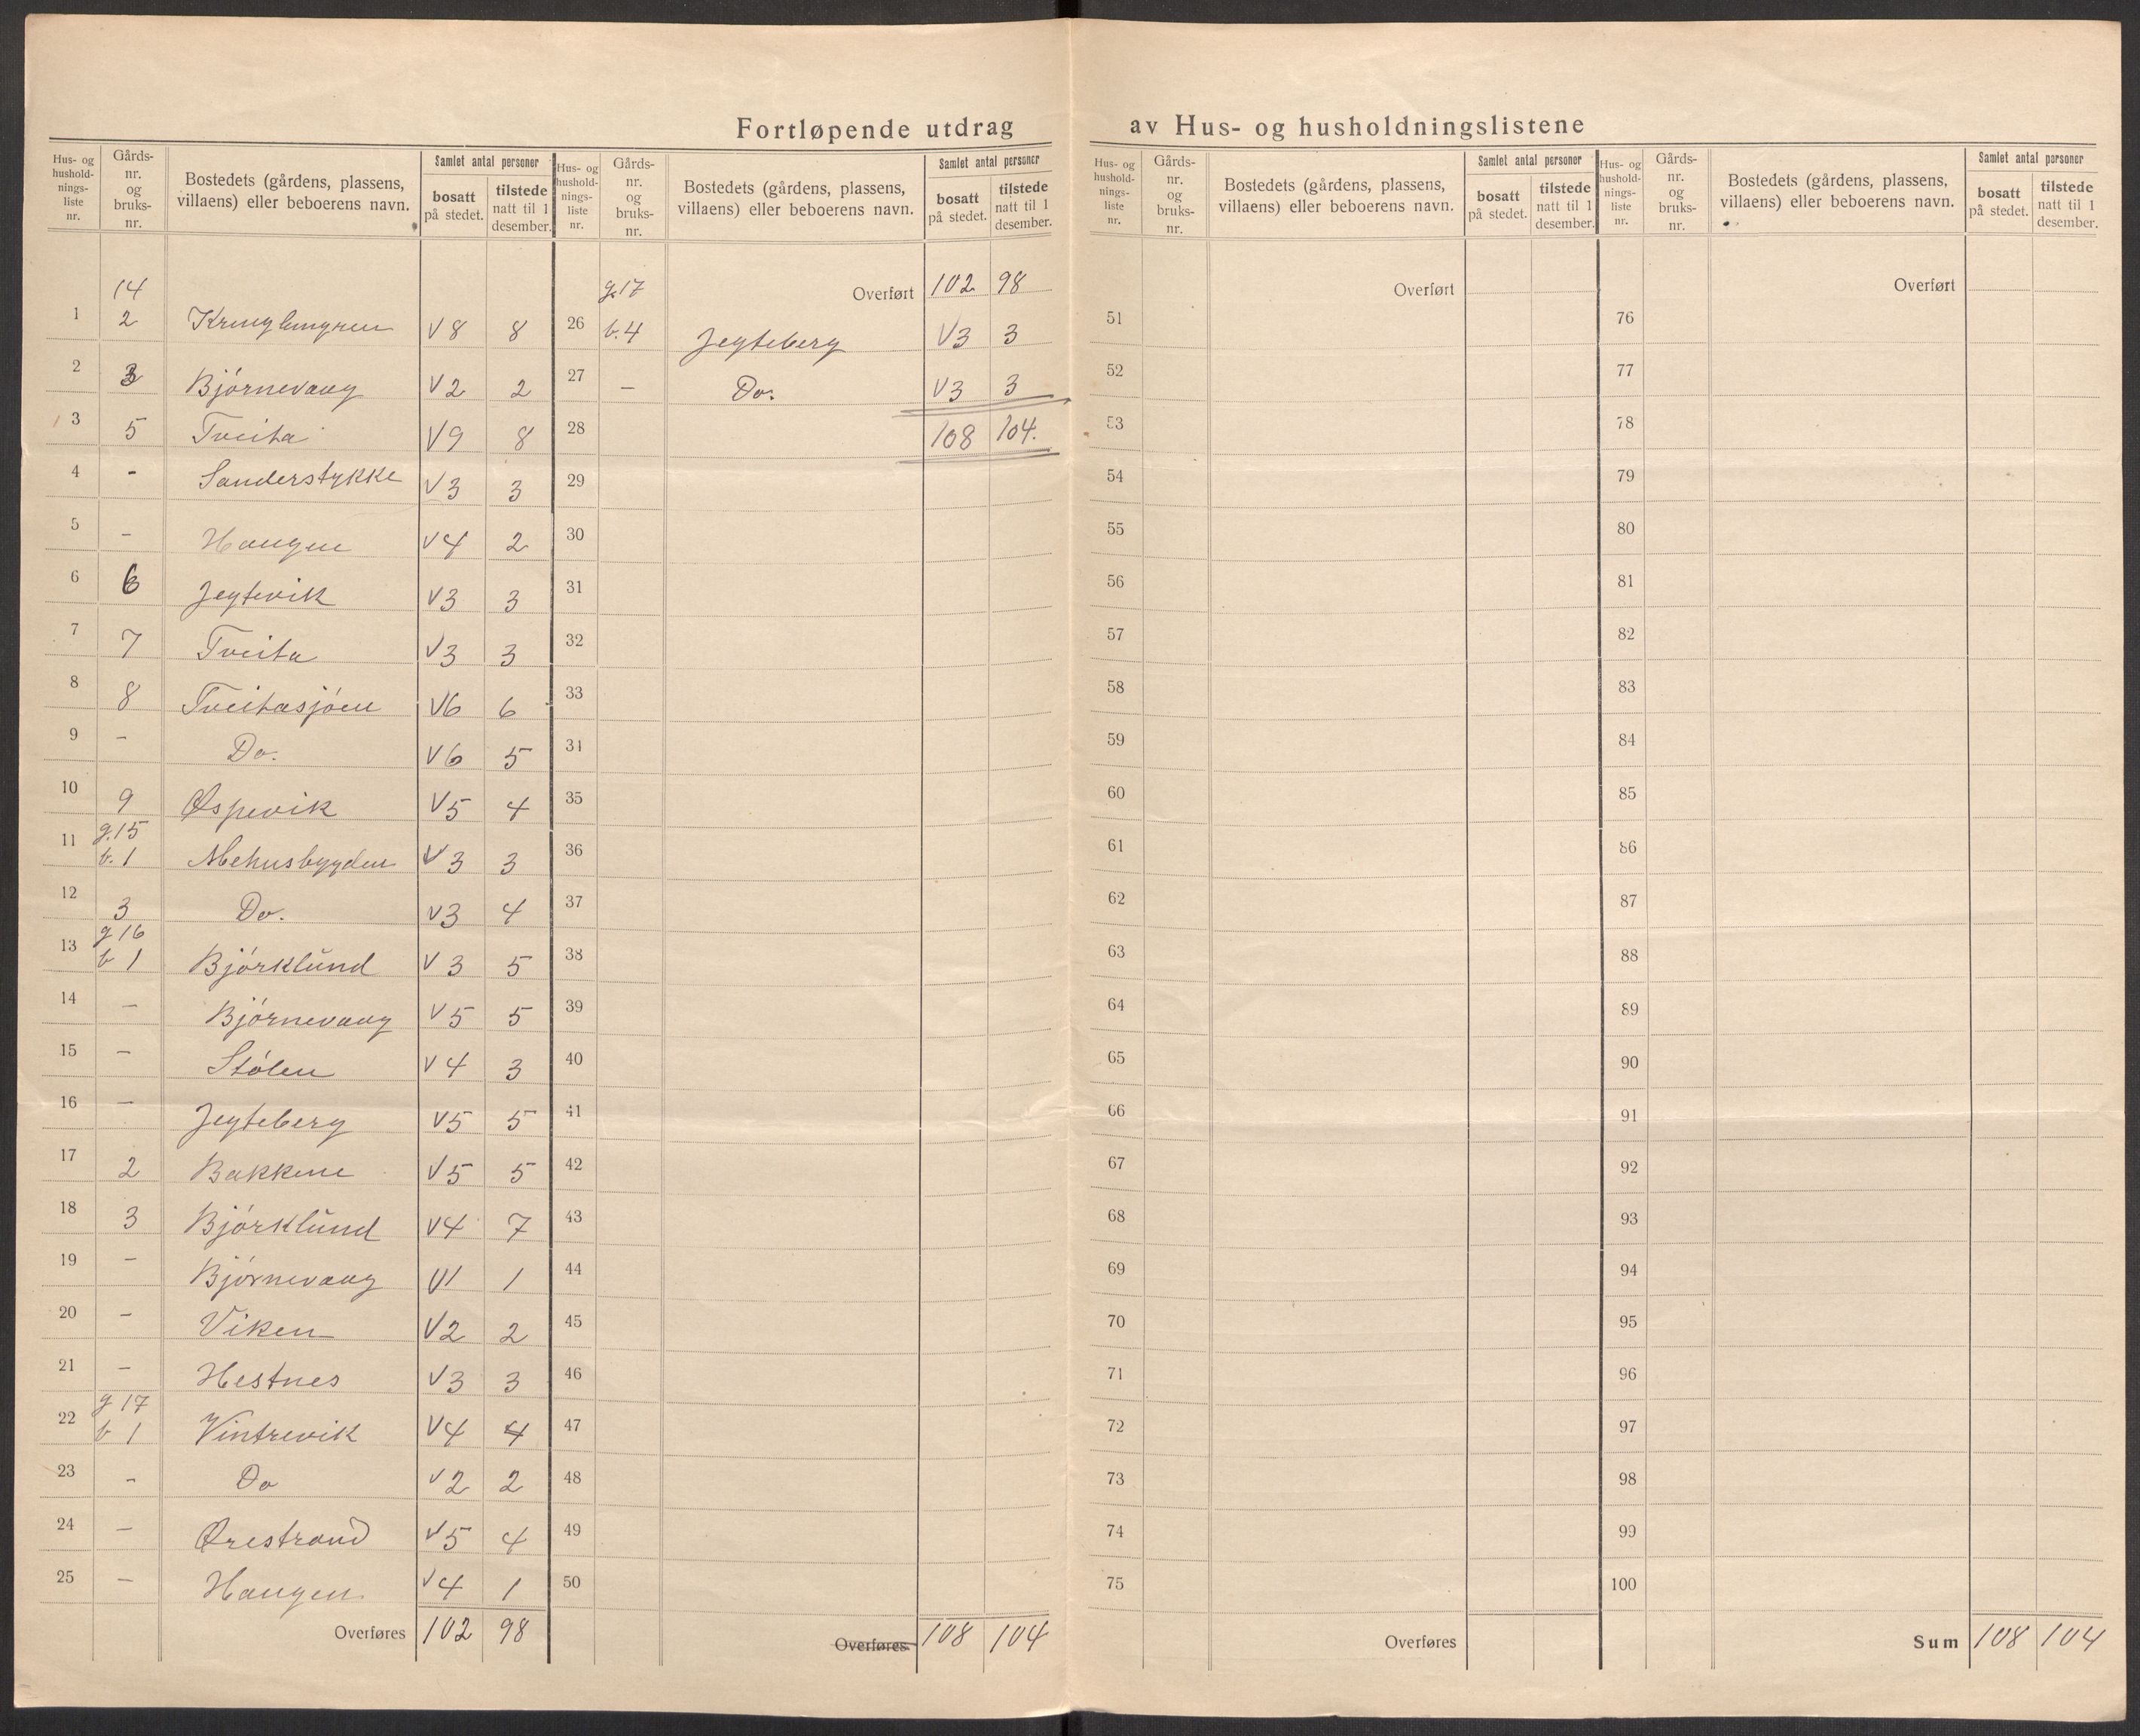 Fortløpende utdrag av Hus- og husholdningslistene
Hus- og husholdningsliste nr. | Gårdsnr. og bruksnr. | Bostedets (gårdens, plassens, villaens) eller beboerens navn. | Samlet antal personer | bosatt på stedet. | tilstede natt til 1 desember.
14
1 2 Kringlemyren V 8 8
2 3 Bjørnevaag V 2 2
3 5 Tveita V 9 8
4 - Sanderstykke V 3 3
5 - Haugen V 4 2
6 6 Jegtevik V 3 3
7 7 Tveita V 3 3
8 8 Tveitasjøen V 6 6
9 - Do. V 6 5
10 9 Øspevik V 5 4
g.15
11 b.1 Mehusbygden V 3 3
12 3 Do. V 3 4
g 16
13 b 1 Bjørklund V 3 5
14 - Bjørnevaag V 5 5
15 - Stølen V 4 3
16 - Jegteberg V 5 5
17 2 Bakkene V 5 5
18 3 Bjørklund V 4 7
19 - Bjørnevaag V 1 1
20 - Viken V 2 2
21 - Hestnes V 3 3
g 17
22 b 1 Vintrevik V 4 4
23 - Do V 2 2
24 - Ørestrand V 5 4
25 - Haugen V 4 1
Overføres 102 98
Hus- og husholdningsliste nr. | Gårdsnr. og bruksnr. | Bostedets (gårdens, plassens, villaens) eller beboerens navn. | Samlet antal personer | bosatt på stedet. | tilstede natt til 1 desember.
g.17 Overført 102 98
26 b.4 Jegteberg V 3 3
27 - Do. V 3 3
28 108 104.
29
30
31
32
33
34
35
36
37
38
39
40
41
42
43
44
45
46
47
48
49
50
Overføres 108 104
Hus- og husholdningsliste nr. | Gårdsnr. og bruksnr. | Bostedets (gårdens, plassens, villaens) eller beboerens navn. | Samlet antal personer | bosatt på stedet. | tilstede natt til 1 desember.
Overført
51
52
53
54
55
56
57
58
59
60
61
62
63
64
65
66
67
68
69
70
71
72
73
74
75
Overføres
Hus- og husholdningsliste nr. | Gårdsnr. og bruksnr. | Bostedets (gårdens, plassens, villaens) eller beboerens navn. | Samlet antal personer | bosatt på stedet. | tilstede natt til 1 desember.
Overført
76
77
78
79
80
81
82
83
84
85
86
87
88
89
90
91
92
93
94
95
96
97
98
99
100
Sum 108 104